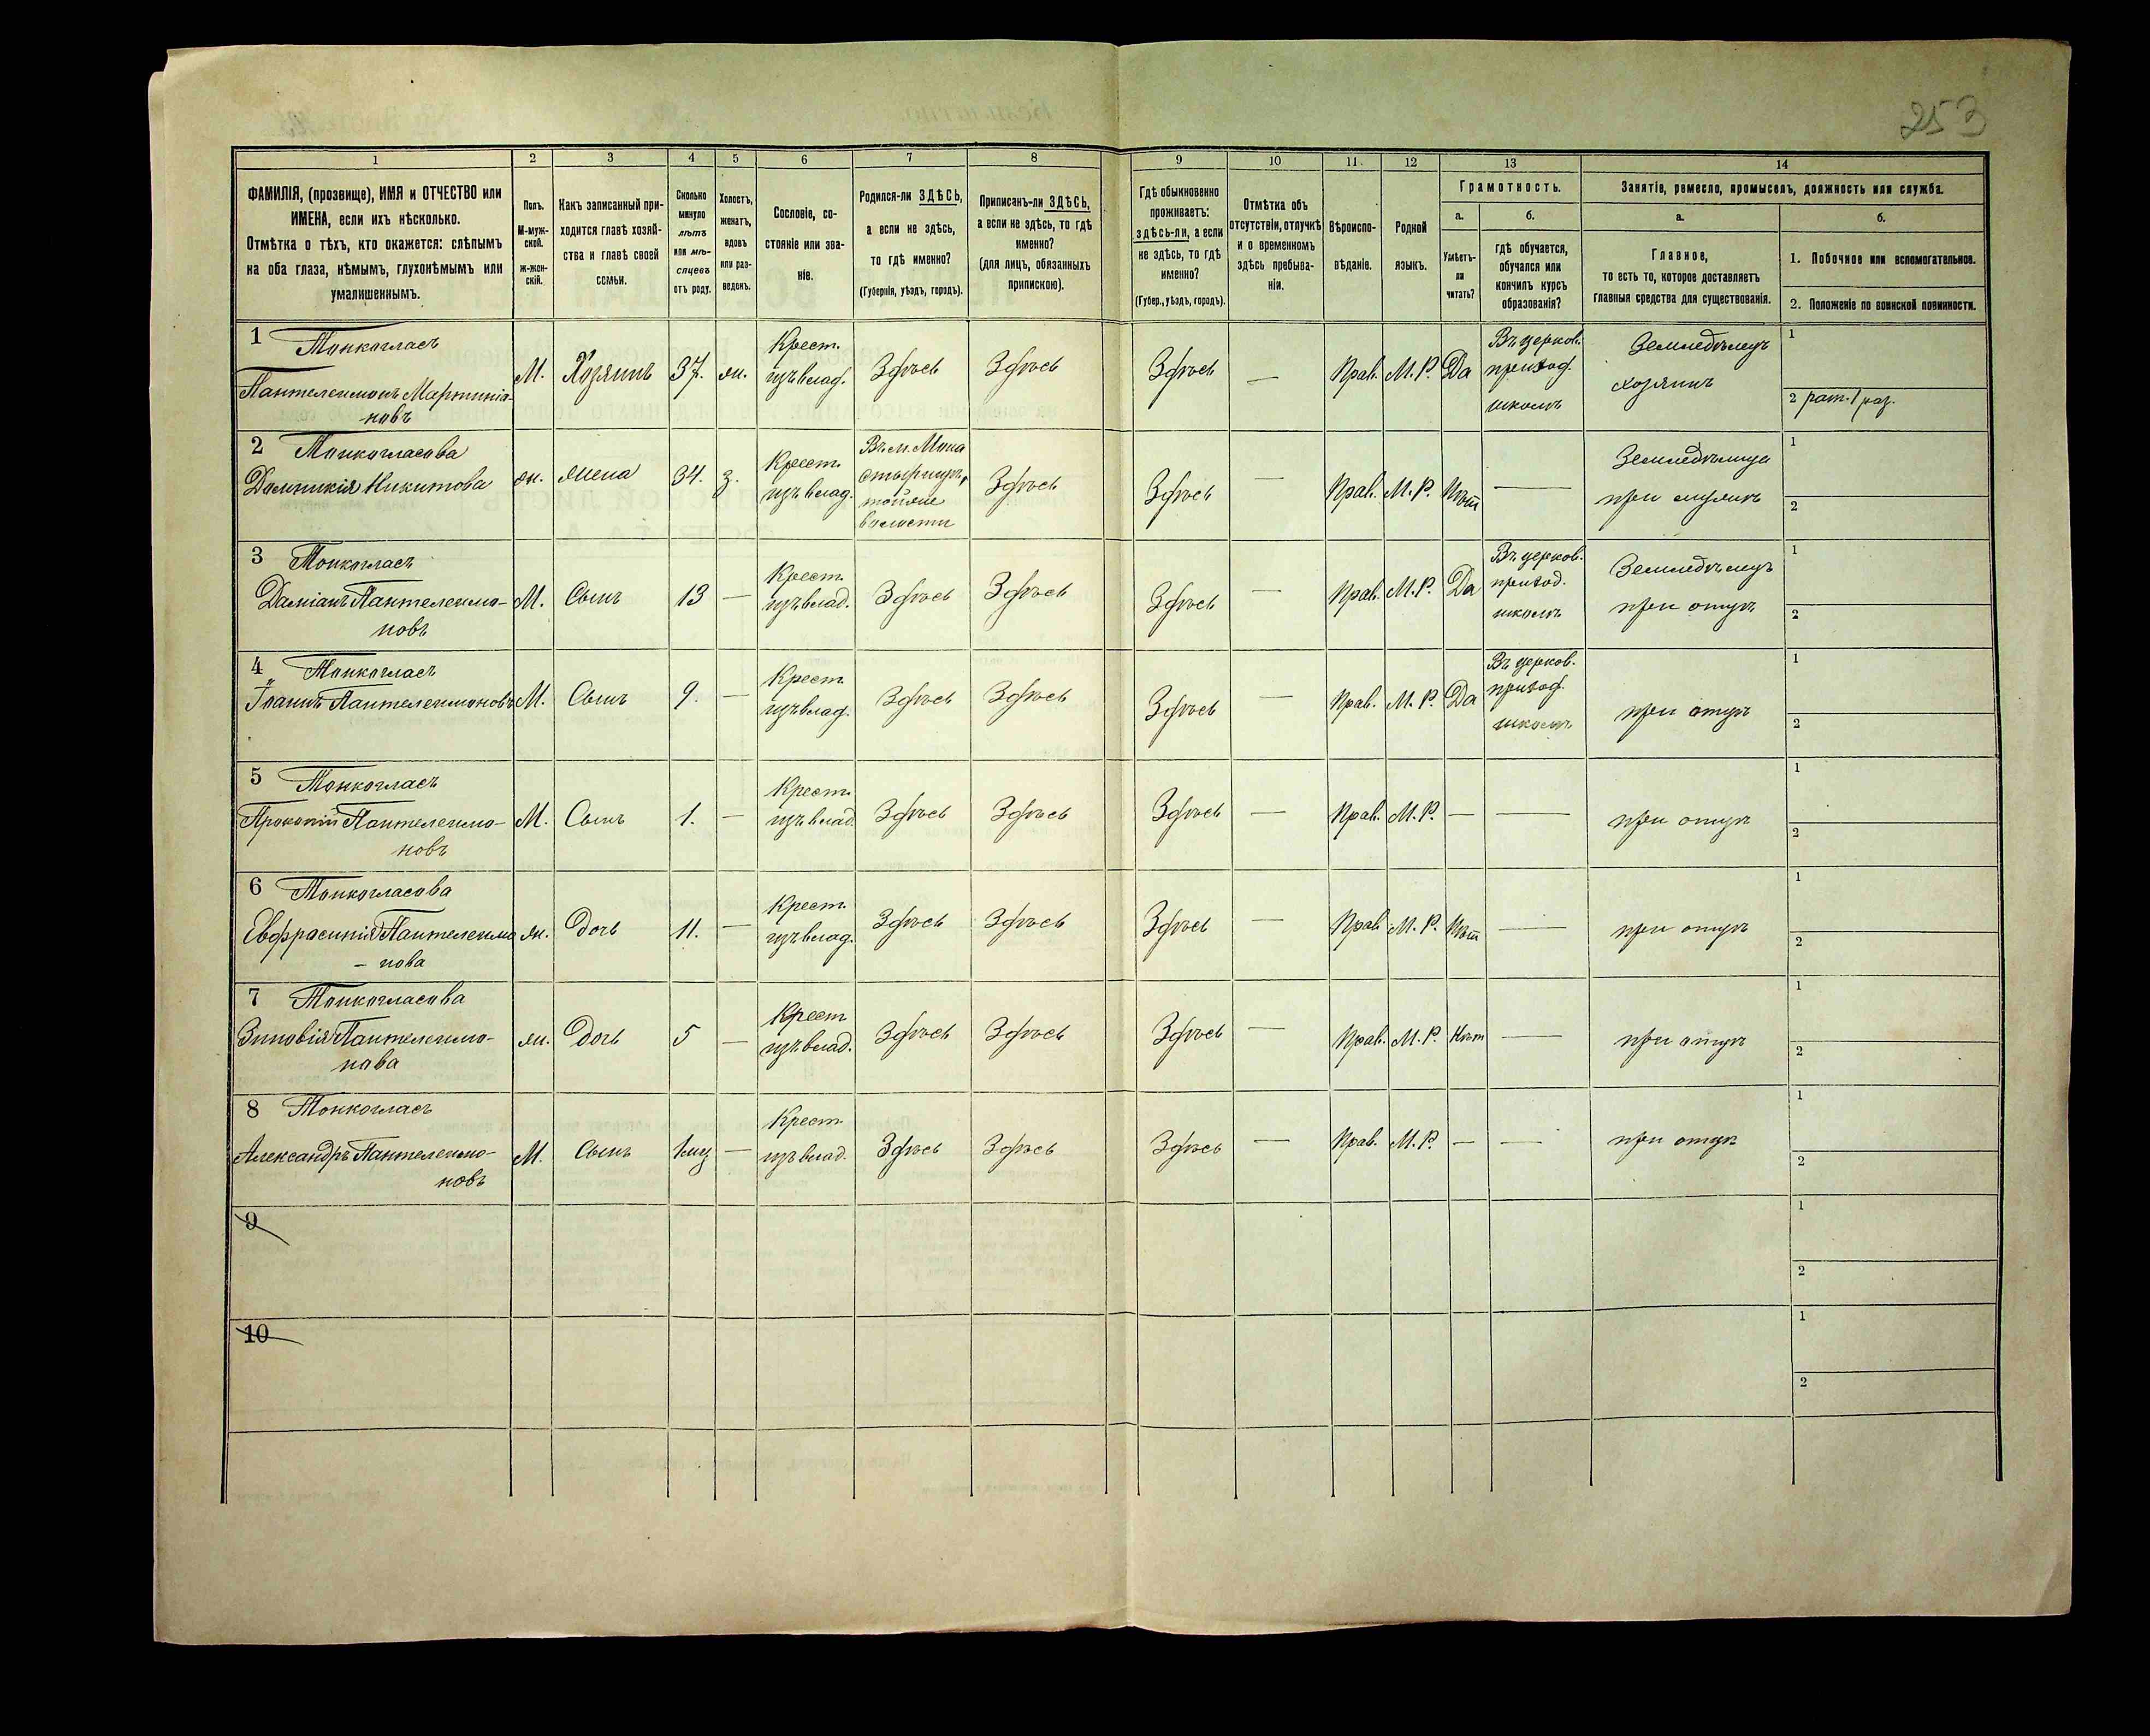 253
1 2 3 4 5 6 7 8 9 10 11. 12 13 14
ФАМИЛІЯ, (прозвище), ИМЯ и ОТЧЕСТВО или
ИМЕНА, если ихъ нѣсколько.
Отмѣтка о тѣхъ, кто окажется: слѣпымъ
на оба глаза, нѣмымъ, глухонѣмымъ или
умалишеннымъ.
Полъ.
М-муж-
ской.
ж-жен-
скій.
Какъ записанный при-
ходится главѣ хозяй-
ства и главѣ своей
семьи.
Сколько
минуло
лѣтъ
или мѣ-
сяцевъ
отъ роду.
Холостъ,
женатъ,
вдовъ
или раз-
веденъ.
Сословіе, со-
стояніе или зва-
ніе.
Родился-ли ЗДѢСЬ,
а если не здѣсь,
то гдѣ именно?
(Губернія, уѣздъ, городъ).
Приписанъ-ли ЗДѢСЬ,
а если не здѣсь, то гдѣ
именно?
(для лицъ, обязанныхъ
припискою).
Гдѣ обыкновенно
проживаетъ:
здѣсь-ли, а если
не здѣсь, то гдѣ
именно?
(Губер., уѣздъ, городъ).
Отмѣтка объ
отсутствіи, отлучкѣ
и о временномъ
здѣсь пребыва-
ніи.
Вѣроиспо-
вѣданіе.
Родной
языкъ.
Грамотность.
а.
Умѣетъ-
ли
читать?
б.
гдѣ обучается,
обучался или
кончилъ курсъ
образованія?
Занятіе, ремесло, промыселъ, должность или служба.
а.
Главное,
то есть то, которое доставляетъ
главныя средства для существованія.
б.
1. Побочное или вспомогательное.
2. Положеніе по воинской повинности.
1 Тонкогласъ
Пантелеимонъ Мартиніа-
новъ
М. Хозяинъ 37. ж.
Крест.
изъ влад.
Здѣсь Здѣсь Здѣсь — Прав. М. Р. Да
Въ церков.
приход.
школѣ
Земледѣлецъ
хозяинъ
1
2 рат. 1 раз.
2 Тонкогласова
Домникія Никитова
ж. жена 34. з.
Крест.
изъ влад.
Въ м. Мона
волости
Здѣсь Здѣсь — Прав. М. Р. Нѣт —
Земледѣлица
при мужѣ
1
2
3 Тонкогласъ
Даміанъ Пантелеимо-
новъ
М. Сынъ 13 —
Крест.
изъ влад.
Здѣсь Здѣсь Здѣсь — Прав. М. Р. Да
Въ церков.
приход.
школѣ
Земледѣлецъ
при отцѣ
1
2
4 Тонкогласъ
Іоаннъ Пантелеимоновъ
М. Сынъ 9. —
Крест.
изъ влад.
Здѣсь Здѣсь Здѣсь — Прав. М. Р. Да
Въ церков.
приход.
школѣ
при отцѣ
1
2
5 Тонкогласъ
Прокопій Пантелеимо-
новъ
М. Сынъ 1. —
Крест.
изъ влад.
Здѣсь Здѣсь Здѣсь — Прав. М. Р. — —
при отцѣ
1
2
6 Тонкогласова
Евфрасинія Пантелеимо
- нова
ж. Дочь 11. —
Крест.
изъ влад.
Здѣсь Здѣсь Здѣсь — Прав. М. Р. Нѣт —
при отцѣ
1
2
7 Тонкогласова
Зиновія Пантелеимо-
нова
ж. Дочь 5 —
Крест
изъ влад.
Здѣсь Здѣсь Здѣсь — Прав. М. Р. Нѣт —
при отцѣ
1
2
8 Тонкогласъ
Александръ Пантелеимо-
новъ
М. Сынъ 1 мц —
Крест
изъ влад.
Здѣсь Здѣсь Здѣсь — Прав. М. Р. — —
при отцѣ
1
2
9
1
2
10
1
2